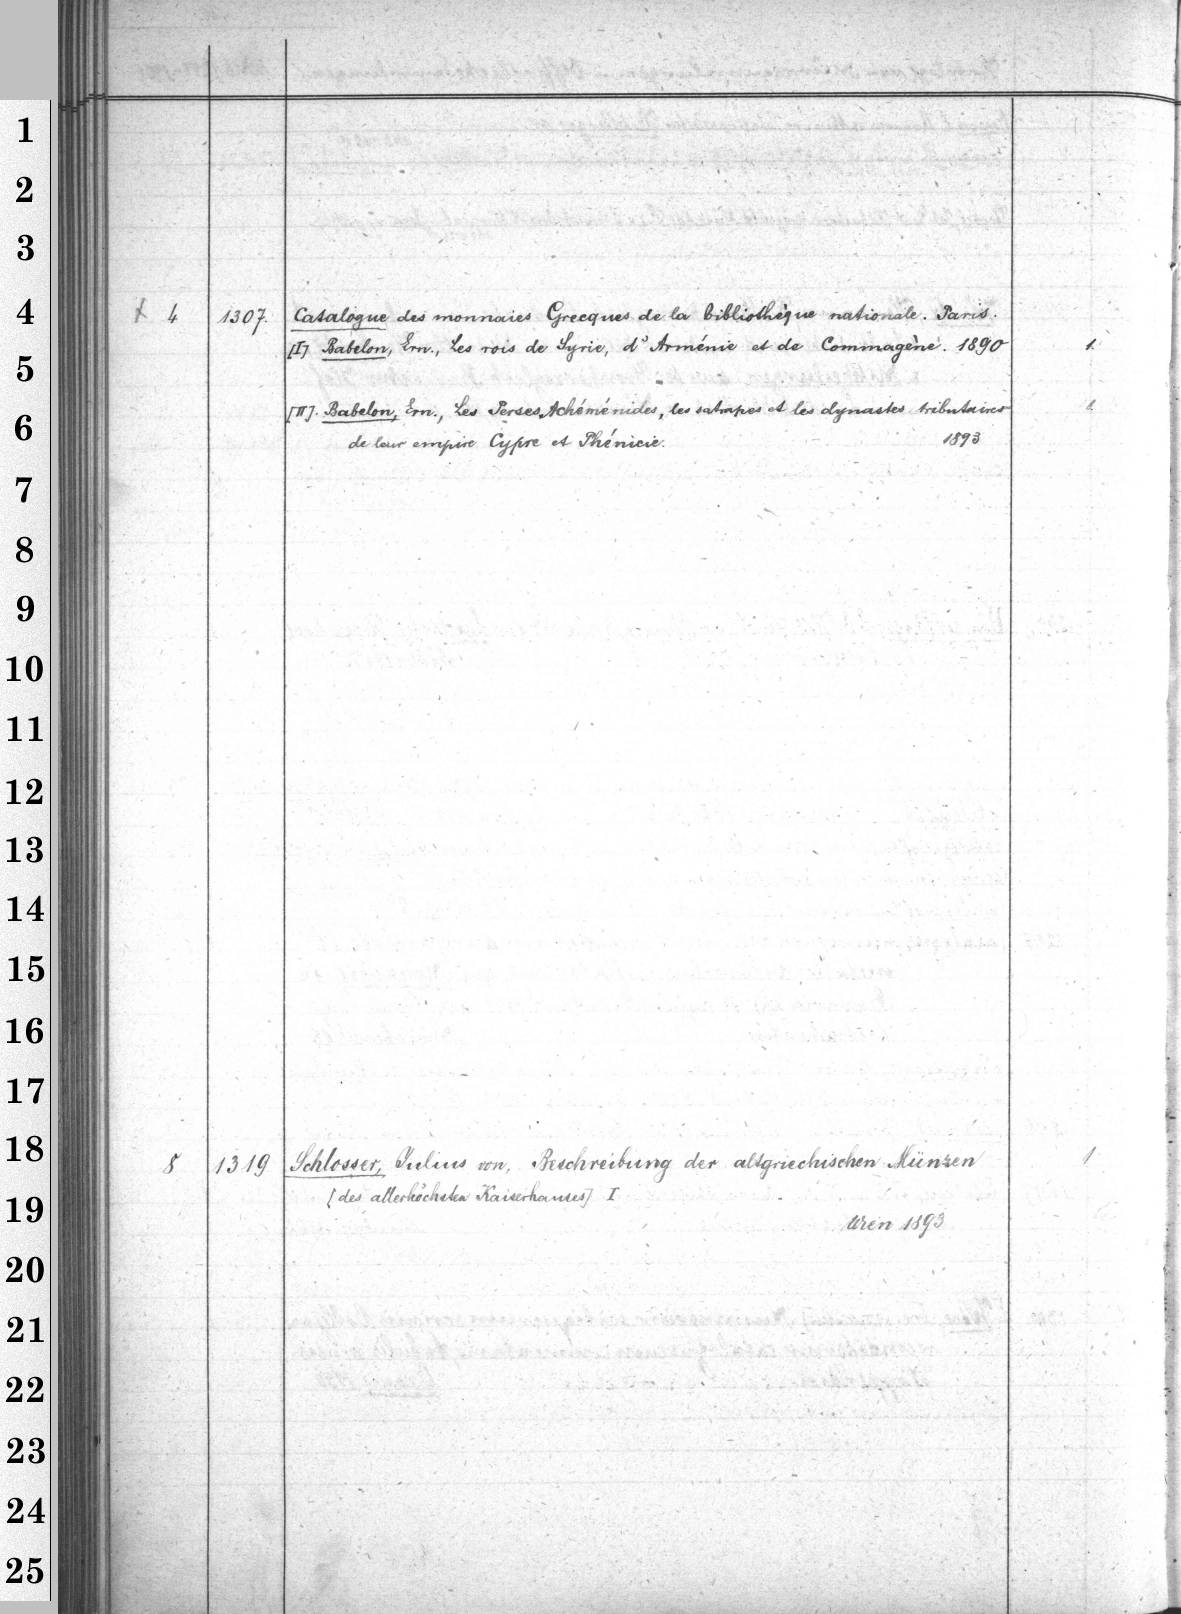 1
2
3
4 4 1307. Catalogue des monnaies Grecques de la bibliothèque nationale. Paris.
5 [I] Babelon, Ern., Les rois de Syrie, d'Arménie et de Commagène. 1890 1.
6 [II]. Babelon, Ern., Les Perses Achéménides, les satrapes et les dynastes tributaires 1.
de leur empire Cypre et Phénicie. 1893
7
8
9
10
11
12
13
14
15
16
17
18 8 1319 Schlosser, Julius von, Beschreibung der altgriechischen Münzen 1
19 [des allerhöchsten Kaiserhauses] I
Wien 1893
20
21
22
23
24
25